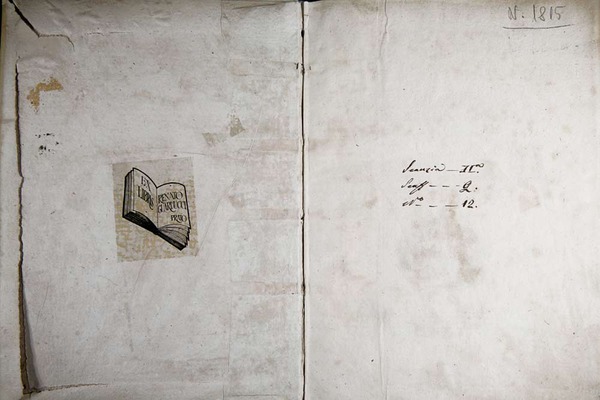 EX
LIBRIS
RENATO
PRATO
N. 1815
Scanzia — II.ª
Scaff — — — Q.
N.º — — — 12.